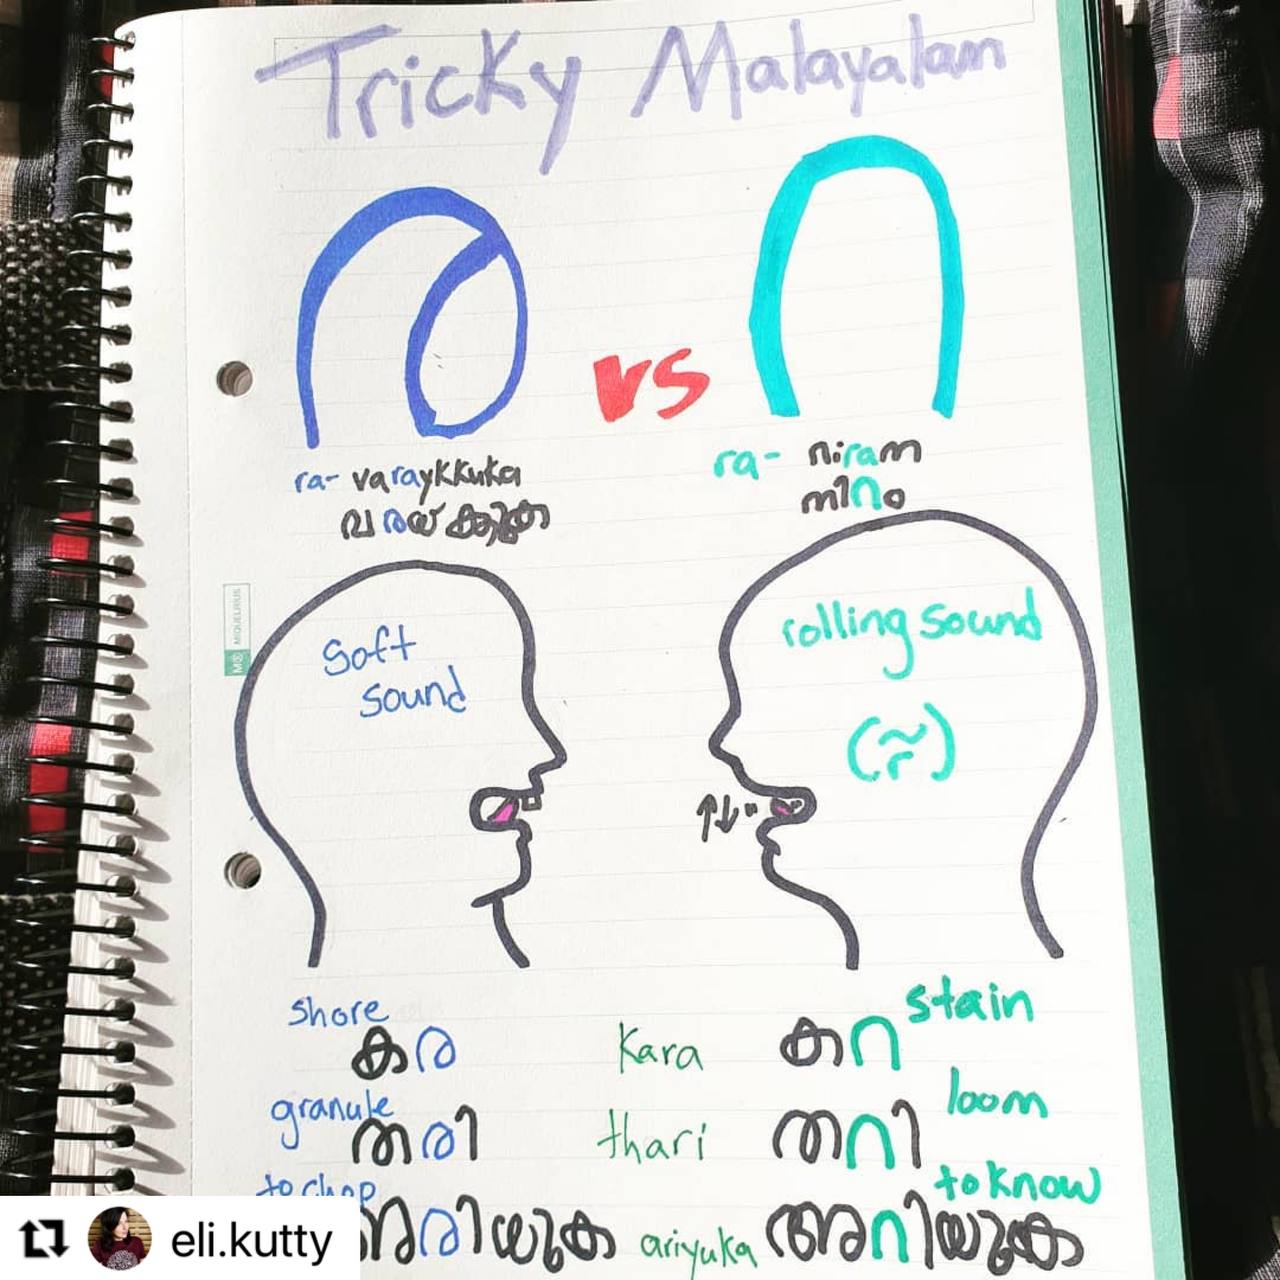 Tricky Malayalam
ര vs റ
ra- varaykkuka
വരയ്കുക
ra- niram
നിറം
soft
sound
rolling sound
(r̃)
MIQUELRIUS
shore
കര Kara കറ stain
granule
തരി thari തറി loom
to chop
അരിയുക ariyuka അറിയുക to know
eli.kutty